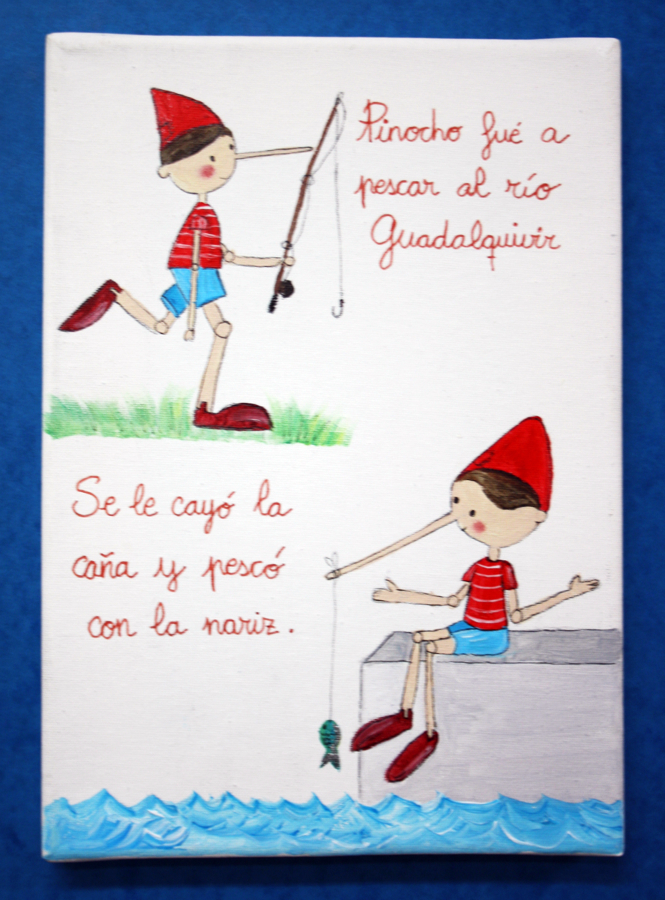 Pinocho fué a
pescar al río
Guadalquivir
Se le cayó la
caña y pescó
con la nariz.